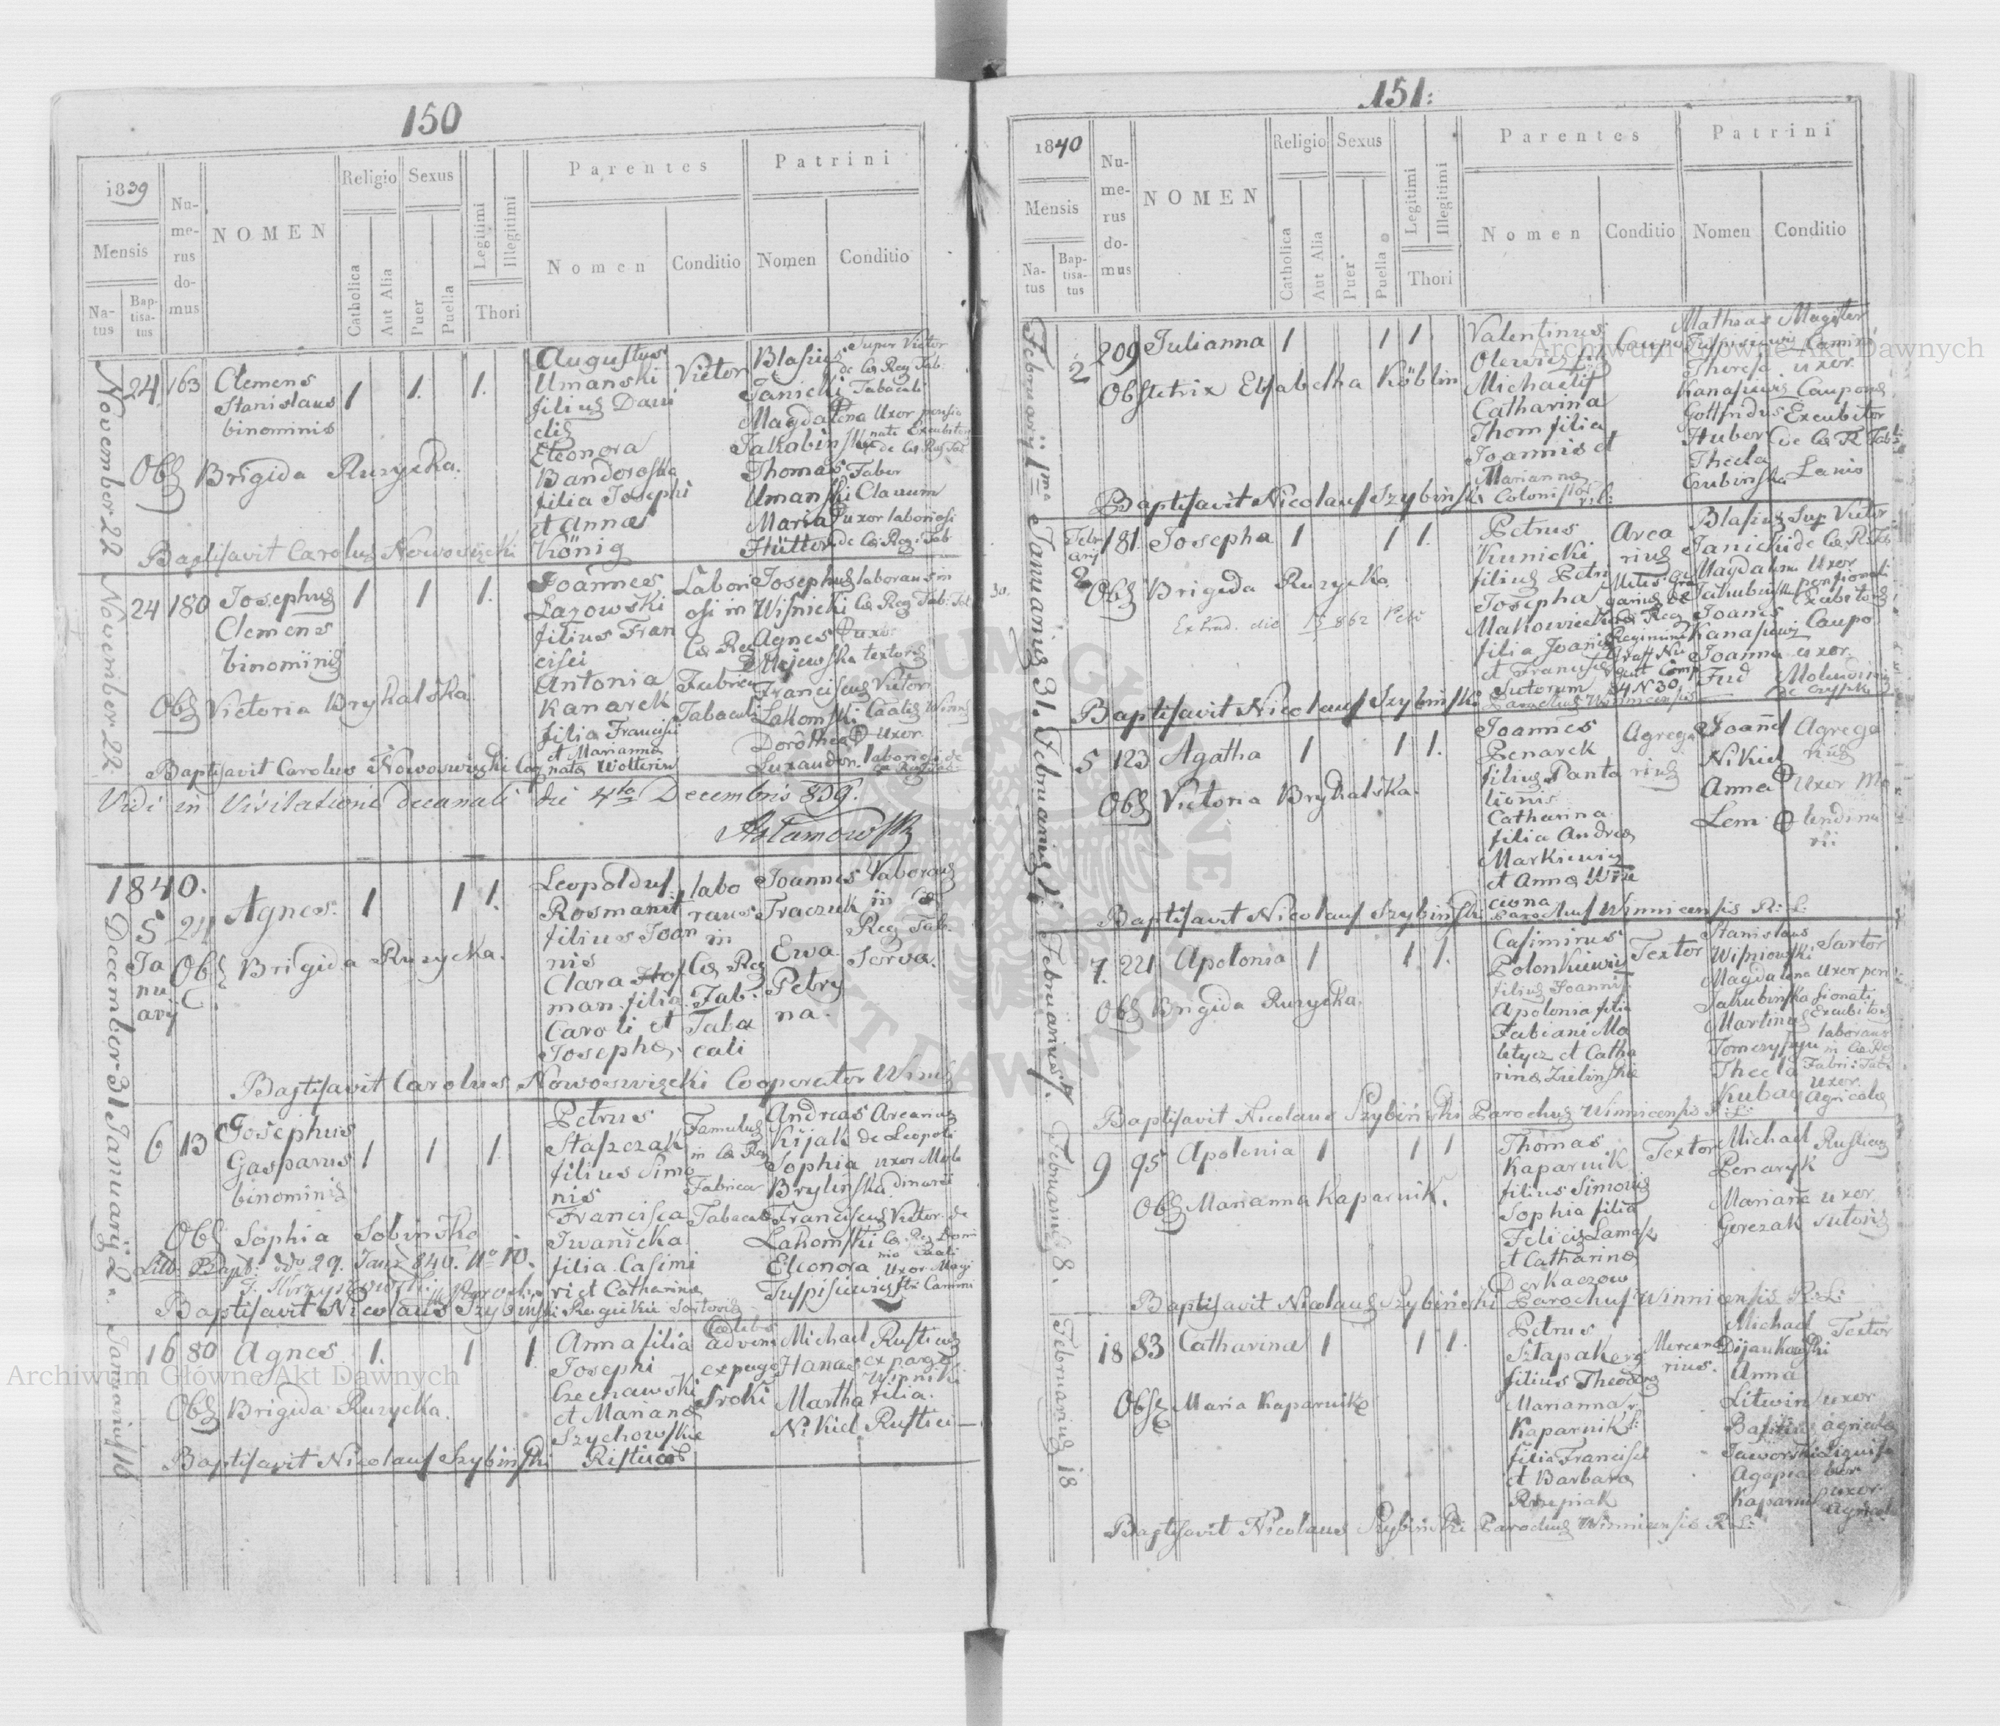 150
1839
Mensis
Natus
Baptisatus
Numerus domus
NOMEN
Religio
Catholica
Aut Alia
Sexus
Puer
Puella
Legitimi
Illegitimi
Thori
Parentes
Nomen
Conditio
Patrini
Nomen
Conditio
November 22
24 163 Clemens 1 1. 1.
Stanislaus
binominis
Obs Brigida Ruzycka.
Augustus
Umanski
filius Dani
elis
Eleonora
Bandoroska
filia Josephi
et Annae
König
Victor
Blasius Super Victor
Janicki de Cs Reg Tab:
Tabacali
Magdalena Uxor pensio
Jakobinska nati Excubitoris
de Cs Reg Tab
Thomas Faber
Umanski Clavum
Maria uxor laboriosi
Hütter de Cs Reg: Tab
Baptisavit Carolus Nowoswięcki
November 22.
24 180 Josephus 1 1 1.
Clemens
binominis
Obs Victoria Brykalska
Joannes
Lazowski
filius Fran
cisci
Antonia
Kanarek
filia Francisci
et Marianna
nata Wolterin
Labori
osi in
Cs Reg
Fabrica
Tabacali
Josephus laborans in
Wisnicki Cs Reg Tab:
Agnes uxor
Majewska textoris
Franciscus Victor
Lahomski
Dorothea uxor
laboriosi de
Baptisavit Carolus Nowoswięcki Coop
Vidi in Visitatione decanali die 4ta Decembris 839.
1840.
December 31 Januarij 2.
5 24 Agnes. 1 1 1.
Ja
nu
arij
Obs Brigida Ruzycka.
Leopoldus
Rosmanit
filius Joan
nis
Clara
man. filia
Caroli et
Josepha.
labo
rans
in
Cs Reg
Tab:
Taba
cali
Joannes laborans
Traczuk in Cs
Reg Tab.
Ewa Serva.
Petry
na.
Baptisavit Carolus Nowoswięcki Cooperator Winn
6 13 Josephus 1 1 1
Gasparus
binominis
Obs Sophia Sobinska
Litt: Bapt: ddo 29. Jan: 840. No 10.
Petrus
Staszczak
filius Simo
nis
Francisca
Iwanicka
filia Casimi
ri et Catharina
Famulus
in Cs Reg
Fabrica
Tabacali
Andreas Arcarius
Kijak de Leopoli
Sophia uxor Mole
Brylinska dinarii
Franciscus Victor de
Lahomski Cs Reg Domi
nio
Eleonora Uxor Magi
Tuspisiewicz stri Camini
Baptisavit Nicolaus Szybiński
Januarius 16
16 80 Agnes 1. 1 1
Obs Brigida Ruzycka.
Anna filia
Josephi
Czechawski
et Mariana
Szychowska
Rustica
Caelebs
advena
ex pago
Sroki
Michael Rusticus
Hanas ex pago
Winniki
Martha filia.
Nikiel Rustici
Baptisavit Nicolaus Szybiński
151:
1840
Mensis
Natus
Baptisatus
Numerus domus
NOMEN
Religio
Catholica
Aut Alia
Sexus
Puer
Puella
Legitimi
Illegitimi
Thori
Parentes
Nomen
Conditio
Patrini
Nomen
Conditio
Februarij 1ma
2 209 Julianna 1 1 1
Obstetrix Elsabetha Köblin
Valentinus
Olewicz
Michaelis
Catharina
Thom filia
Joannis et
Marianna
Colonistor
Caupo
Mathias Magister
Tuspisiewicz Camini
Theresa uxor
Kanasiewicz Cauponis
Gottfridus Excubitor
Huber de Cs R Tab:
Thecla
Gubinska Lanio
Baptisavit Nicolaus Szybiński
Januarius 31.
Febr
arij
2
181. Josepha 1 1 1.
Obs Brigida Ruzycka
Extrad. die
Petrus
Kunicki
filius Petri
Josepha
Makowiecka
filia Joanis
et Francisca
Sutorum
Arca
rius
Blasius Sup Victor
Janicki de Cs. R. Tab
Magdalena Uxor
Jakubinska pensionati
Excubitoris
Joanes
Kanasiewicz Caupo
Joanna uxor
Fud
Baptisavit Nicolaus Szybiński
Parochus Winnicensis
Februarius
5 123 Agatha 1 1 1.
Obs Victoria Brykalska.
Joannes
Penarek
filius Panta
lionis
Catharina
filia Andrea
Markiewicz
et Anna Win
ciona
Agrega
rius
Joanes Agrega
Nikiel rius
Anna Uxor Mo
Lem lendina
rii
Baptisavit Nicolaus Szybiński Parochus Winnicensis R: L:
Februarius 7.
7. 221 Apolonia 1 1 1.
Obs Brigida Ruzycka.
Casimirus
Polonkiewicz
filius Joannis
Apolonia filia
Fabiani Ma
letycz et Catha
rina Zielinska
Textor
Stanislaus
Wisniowski Sartor
Magdalena uxor pen
Jakubinska sionati
Excubitoris
Martinus
laborans
Tomczyszyn in Cs Reg
Thecla Fabri: Tab:
Kubay Uxor
Agricola
Baptisavit Nicolaus Szybiński Parochus Winnicensis R: L:
Februarius 8.
9 95 Apolonia 1 1 1
Obs Marianna Kaparnik.
Thomas
Kaparnik
filius Simonis
Sophia filia
Felicis Lamasz
et Catharina
Derkaczow
Textor
Michael Rusticus
Penaryk
Mariana uxor
Gorczak Sutoris
Baptisavit Nicolaus Szybiński Parochus Winnicensis R: L:
Februarius 18
18 83 Catharina 1 1 1.
Obs Maria Kaparnik
Petrus
Sztapakerz
filius Theodor
Marianna
Kaparnik
filia Francisci
et Barbara
Rzepiak
Mercena
rius.
Michael Textor
Dijankowski
Anna
Litwin uxor
agricola
Jaworski
Agapia
Kaparnik uxor
Agricola
Baptisavit Nicolaus Szybiński Parochus Winnicensis R: L:
Archiwum Główne Akt Dawnych
Archiwum Główne Akt Dawnych